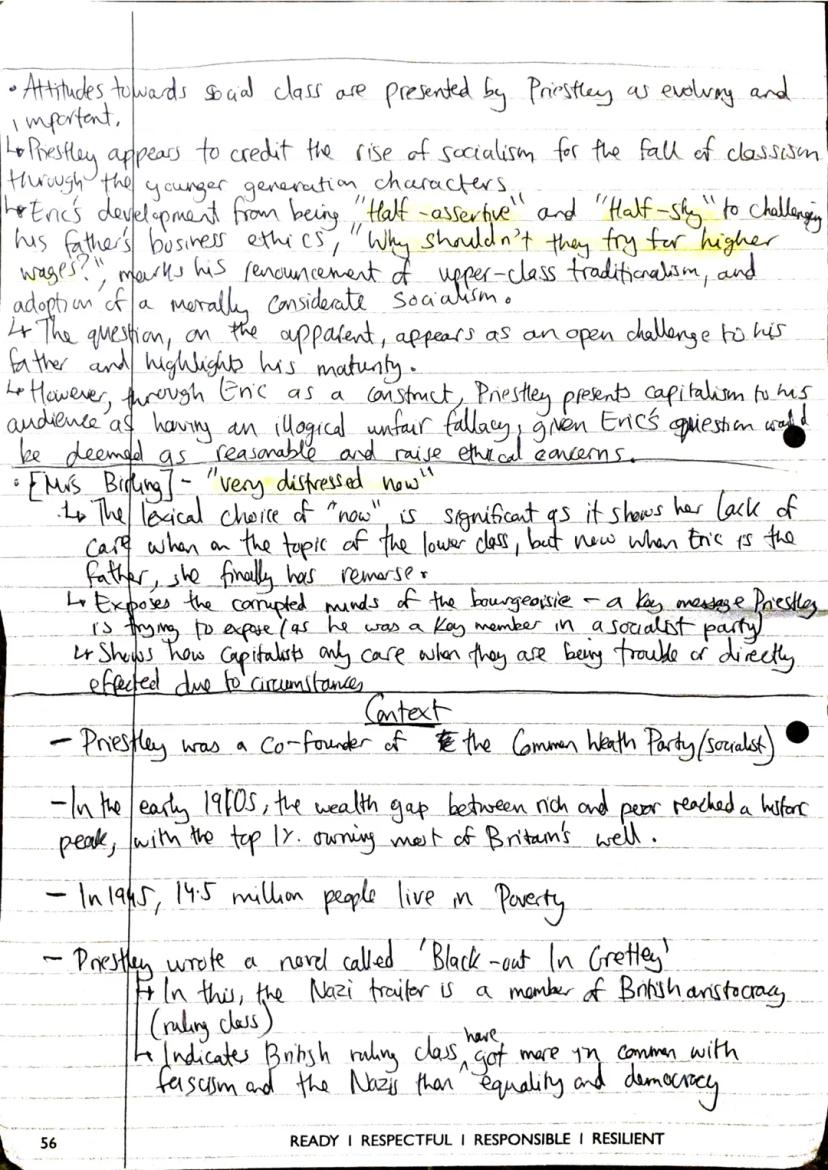 • Attitudes towards social class are presented by Priestley as evolving and
important.
↳ Priestley appears to credit the rise of socialism for the fall of classism
through the younger generation characters
↳ Eric's development from being "Half-assertive" and "Half-shy" to challenging
his father's business ethics, "Why shouldn't they try for higher
wages?", marks his renouncement of upper-class traditionalism, and
adoption of a morally considerate Socialism.
↳ The question, on the apparent, appears as an open challenge to his
father and highlights his maturity.
↳ However, through Eric as a construct, Priestley presents capitalism to his
audience as having an illogical unfair fallacy, given Eric's question would
be deemed as reasonable and raise ethical concerns.
• [Mrs Birling] - "very distressed now"
↳ The lexical choice of "now" is significant as it shows her lack of
care when on the topic of the lower class, but now when Eric is the
father, she finally has remorse.
↳ Exposes the corrupted minds of the bourgeoisie - a key message Priestley
is trying to expose (as he was a key member in a socialist party)
↳ Shows how capitalists only care when they are being trouble or directly
effected due to circumstances
Context
- Priestley was a co-founder of the Common Weath Party (socialist)
- In the early 1910s, the wealth gap between rich and poor reached a historic
peak, with the top 1%. owning most of Britain's well.
- In 1945, 14.5 million people live in Poverty
- Priestley wrote a novel called 'Black-out In Gretley'
↳ In this, the Nazi traitor is a member of British aristocracy
(ruling class)
↳ Indicates British ruling class have got more in common with
fascism and the Nazis than equality and democracy
56 READY | RESPECTFUL | RESPONSIBLE | RESILIENT